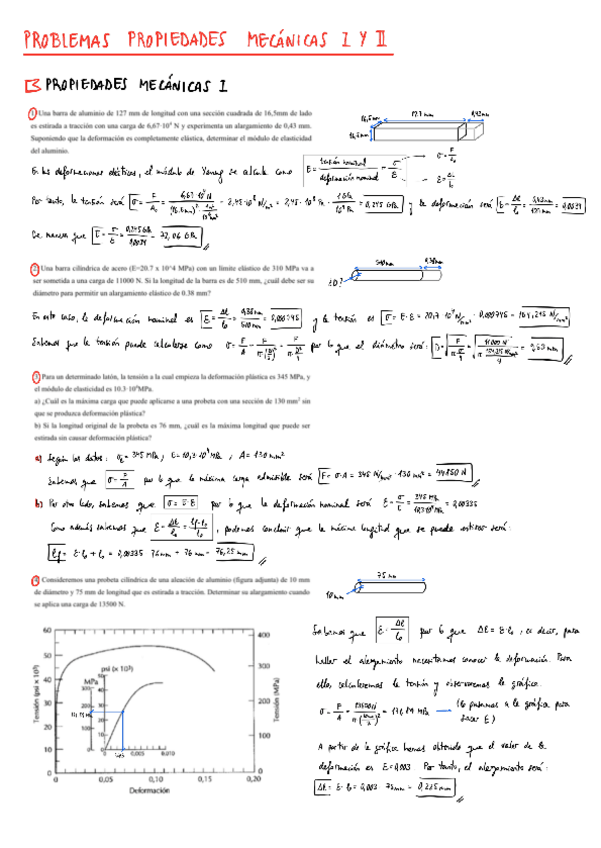 PROBLEMAS PROPIEDADES MECÁNICAS I Y II
PROPIEDADES MECÁNICAS I
1) Una barra de aluminio de 127 mm de longitud con una sección cuadrada de 16,5mm de lado
es estirada a tracción con una carga de 6,67·10⁴ N y experimenta un alargamiento de 0,43 mm.
Suponiendo que la deformación es completamente elástica, determinar el módulo de elasticidad
del aluminio.
16,5mm 127 mm 0,43 mm
16,5 mm
En las deformaciones elásticas, el módulo de Young se calcula como E = tensión nominal / deformación nominal = σ/ε → σ = F/A₀
→ ε = Δl/l₀
Por tanto, la tensión será σ = F/A₀ = 0,245 GPa y la deformación será ε = Δl/l₀ = 0,43mm/127mm = 0,0034
De manera que E = σ/ε = 0,245GPa/0,0034 = 72,06 GPa
2) Una barra cilíndrica de acero (E=20.7 x 10^4 MPa) con un límite elástico de 310 MPa va a
ser sometida a una carga de 11000 N. Si la longitud de la barra es de 510 mm, ¿cuál debe ser su
diámetro para permitir un alargamiento elástico de 0.38 mm?
510mm 0,38mm
¿D?
En este caso, la deformación nominal es ε = Δl/l₀ = 0,38mm/510mm = 0,000745 y la tensión es σ = E·ε
Sabemos que la tensión puede calcularse como por lo que el diámetro será:
3) Para un determinado latón, la tensión a la cual empieza la deformación plástica es 345 MPa, y
el módulo de elasticidad es 10.3·10⁴MPa.
a) ¿Cuál es la máxima carga que puede aplicarse a una probeta con una sección de 130 mm² sin
que se produzca deformación plástica?
b) Si la longitud original de la probeta es 76 mm, ¿cuál es la máxima longitud que puede ser
estirada sin causar deformación plástica?
a) Según los datos: σE = 345 MPa; E = 10,3·10⁴ MPa; A = 130 mm²
Sabemos que σ = F/A por lo que la máxima carga admisible será F = σ·A = 345 N/mm² · 130 mm² = 44850 N
b) Por otro lado, sabemos que σ = E·ε por lo que la deformación nominal será ε = σ/E = 0,00335
Como además sabemos que ε = Δl/l₀ = lf-l₀/l₀, podemos concluir que la máxima longitud que se puede estirar será:
lf = ε·l₀ + l₀ = 0,00335 · 76mm + 76 mm = 76,25 mm
4) Consideremos una probeta cilíndrica de una aleación de aluminio (figura adjunta) de 10 mm
de diámetro y 75 mm de longitud que es estirada a tracción. Determinar su alargamiento cuando
se aplica una carga de 13500 N.
75 mm
10 mm
Sabemos que ε = Δl/l₀ por lo que Δl = ε·l₀, es decir, para
hallar el alargamiento necesitamos conocer la deformación. Para
ello, calcularemos la tensión y observaremos la gráfica.
σ = F/A = 171,89 MPa → (lo pasamos a la gráfica para
sacar ε)
A partir de la gráfica hemos obtenido que el valor de la
deformación es ε = 0,003. Por tanto, el alargamiento será:
Δl = ε·l₀ = 0,003 · 75mm = 0,225mm
60
50
40
30
20
10
0
Tensión (psi x 10³)
400
300
200
100
0
Tensión (MPa)
psi (x 10³)
MPa
0 0,005 0,010
0 0,05 0,10 0,15 0,20
Deformación